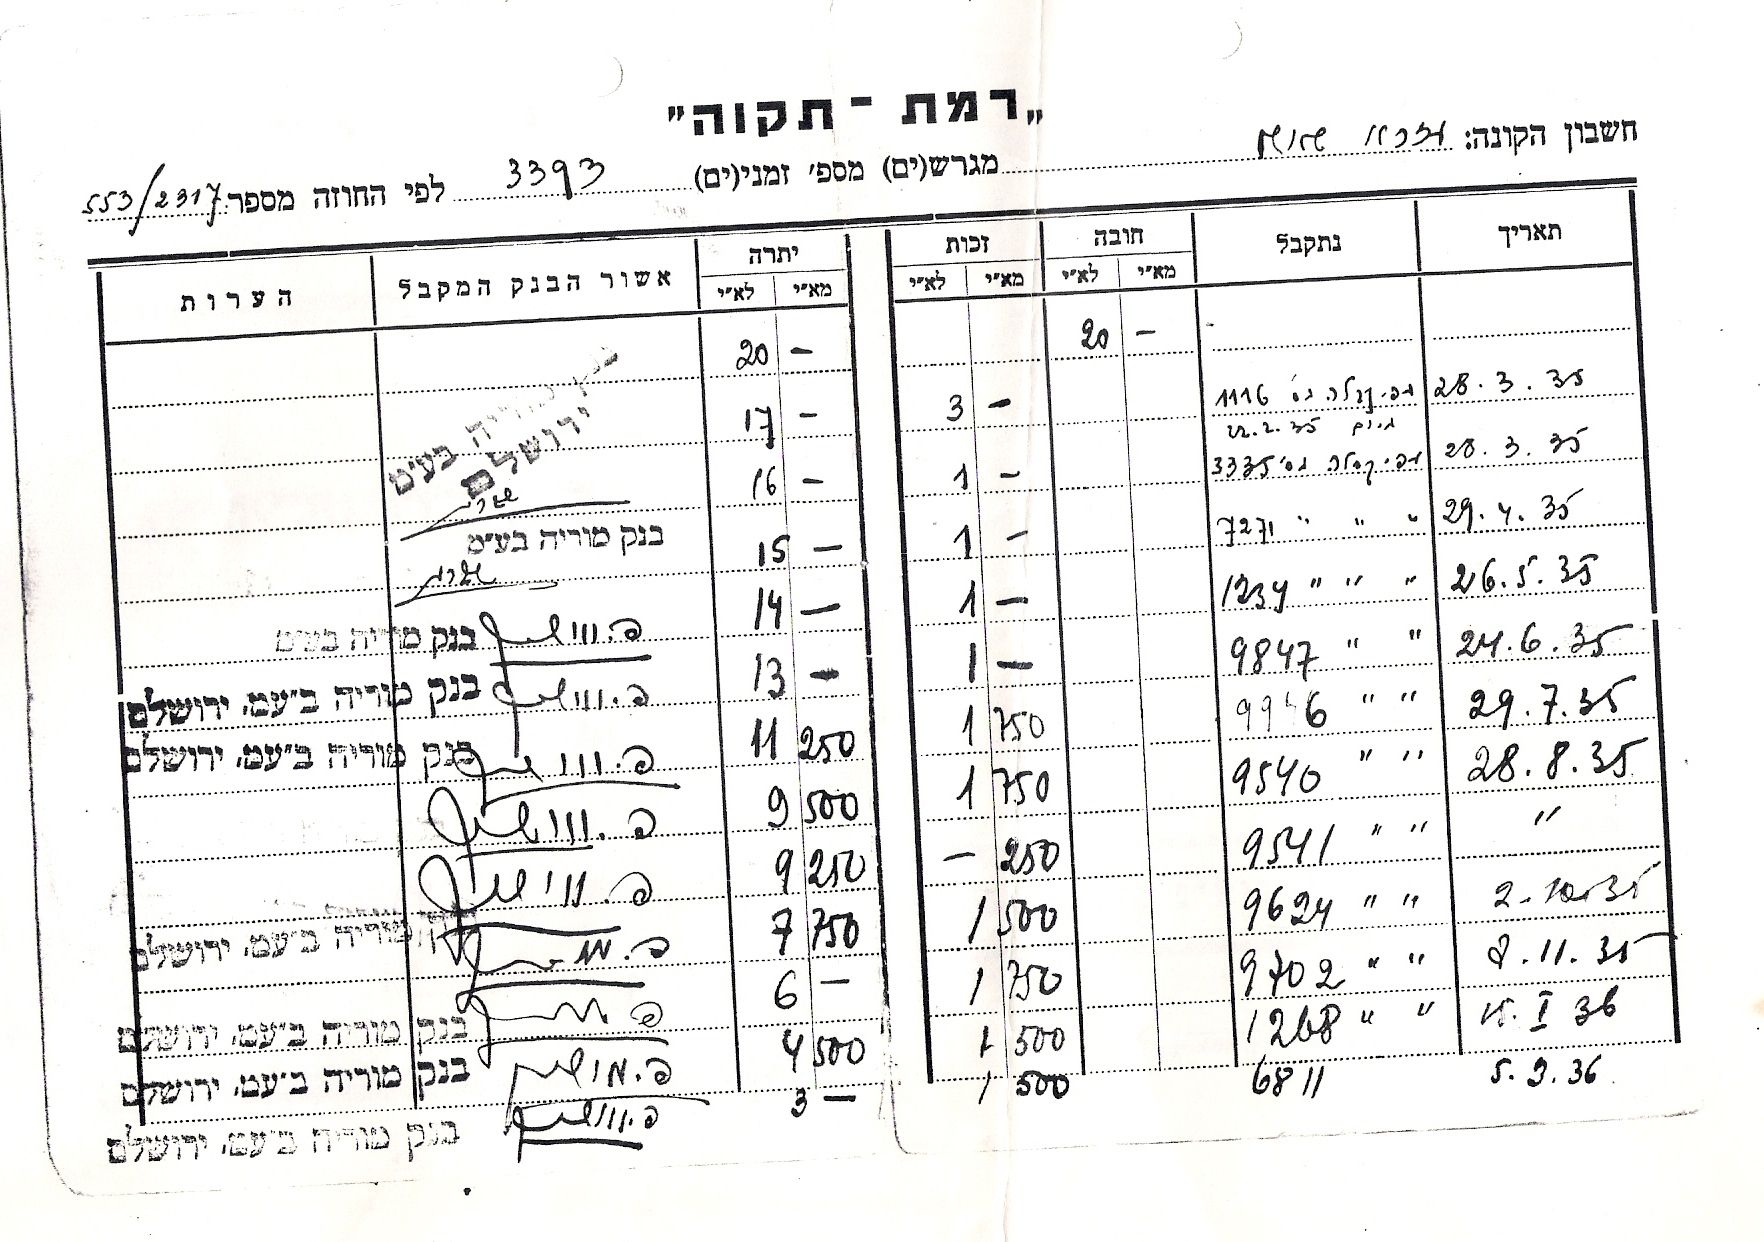 „רמת - תקוה"
חשבון הקונה:
מגרש(ים) מספ' זמני(ים) 3393 לפי החוזה מספר: 553/2317
תאריך נתקבל חובה זכות יתרה אשור הבנק המקבל הערות
מא"י לא"י מא"י לא"י מא"י לא"י
20 — 20 —
28.3.35 1116 3 — 17 —
22.2.35
בנק מוריה בע"מ
ירושלם
28.3.35 3335 1 — 16 —
29.4.35 " " " 7271 1 — 15 — בנק מוריה בע"מ
26.5.35 " " " 1234 1 — 14 —
24.6.35 " " 9847 1 — 13 — בנק מוריה בע"מ
29.7.35 " " 9946 1 750 11 250 בנק מוריה ב"עמ, ירושלם
28.8.35 " " 9540 1 750 9 500 בנק מוריה ב"עמ, ירושלם
" " " 9541 — 250 9 250
2.10.35 " " 9624 1 500 7 750
8.11.35 " " 9702 1 750 6 — מוריה ב"עמ, ירושלם
I 36 " " 1268 1 500 4 500 בנק מוריה ב"עמ, ירושלם
5.3.36 6811 1 500 3 — בנק מוריה ב"עמ, ירושלם
בנק מוריה ב"עמ, ירושלם